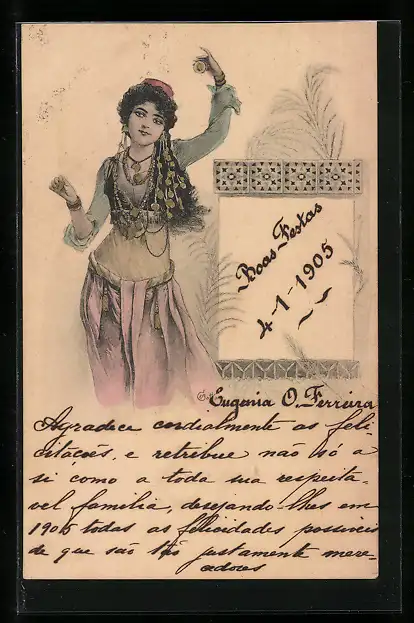 Boas Festas
4-1-1905
Eugenia O. Ferreira
Agradece cordialmente as feli-
citações, e retribue não só a
si como a toda sua respeita-
vel familia, desejando-lhes em
1905 todas as felicidades possiveis
de que são tão justamente mere-
cedores